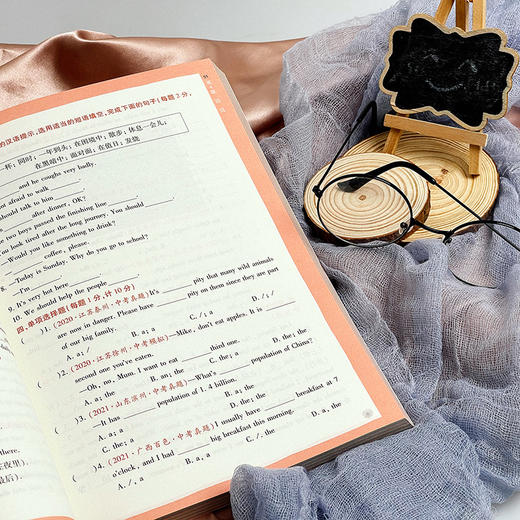 的汉语提示,选用适当的短语填空,完成下面的句子(每题2分,
一杯;同时;一年到头;在困境中;散步;休息一会儿;
在黑暗中;面对面;在值日;发烧
and he coughs very badly.
afraid to walk
should talk to him
after dinner, OK?
two boys passed the finishing line
You look tired after the long journey. You should
—Would you like something to drink?
coffee, please.
8. —Today is Sunday. Why do you go to school?
9. It's very hot here
10. We should help the people
四、单项选择题(每题1分,计10分)
( )1. (2020·江苏泰州·中考真题)It's pity that many wild animals
are now in danger. Please have pity on them since they are part
of our big family.
A. a; / B. a; a C. /; a D. /; /
( )2. (2020·江苏徐州·中考模拟)—Mike, don't eat apples. It is
second one you've eaten.
—Oh, no. Mum. I want to eat third one.
A. a; the B. an; the C. the; a D. the; the
( )3. (2021·山东滨州·中考真题)—What's population of China?
—It has population of 1.4 billion.
A. a; a B. a; the
C. the; a D. the; the
( )4. (2021·广西百色·中考真题)I usually have breakfast at 7
o'clock, and I had big breakfast this morning.
A. /, / B. a, a C. /, the D. a, the